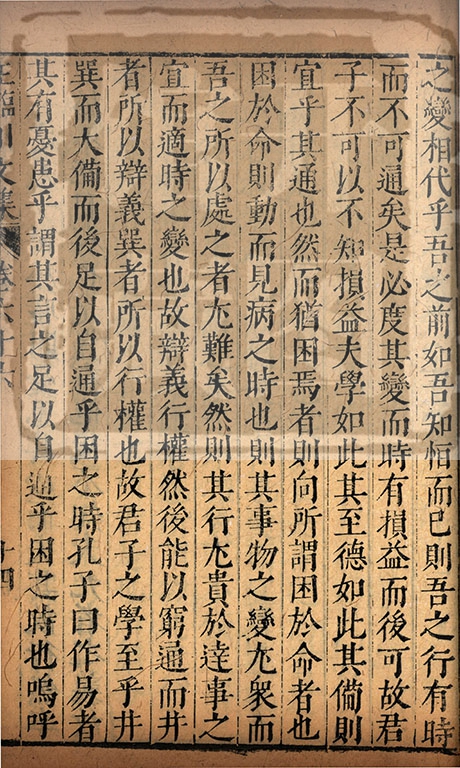 之變相代乎吾之前如吾知恒而已則吾之行有時
而不可通矣是必度其變而時有損益而後可故君
子不可以不知損益夫學如此其至德如此其備則
宜乎其通也然而猶困焉者則向所謂困於命者也
困於命則動而見病之時也則其事物之變尤衆而
吾之所以處之者尤難矣然則其行尤貴於達事之
宜而適時之變也故辯義行權然後能以窮通而井
者所以辯義巽者所以行權也故君子之學至乎井
巽而大備而後足以自通乎困之時孔子曰作易者
其有憂患乎謂其言之足以自通乎困之時也嗚呼
王臨川文集 卷六十六 十四